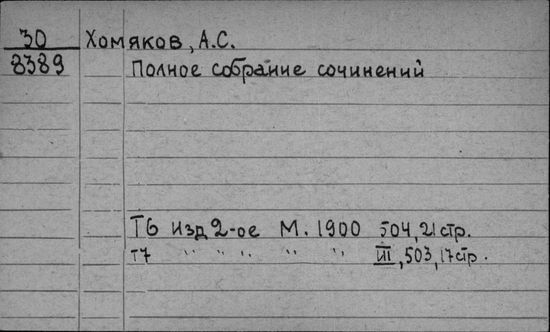 30 Хомяков, А.С.
8389 Полное собрание сочинений
Т6 изд 2-ое М. 1900 504, 21 стр.
т7 " " " " " III, 503, 17 стр.